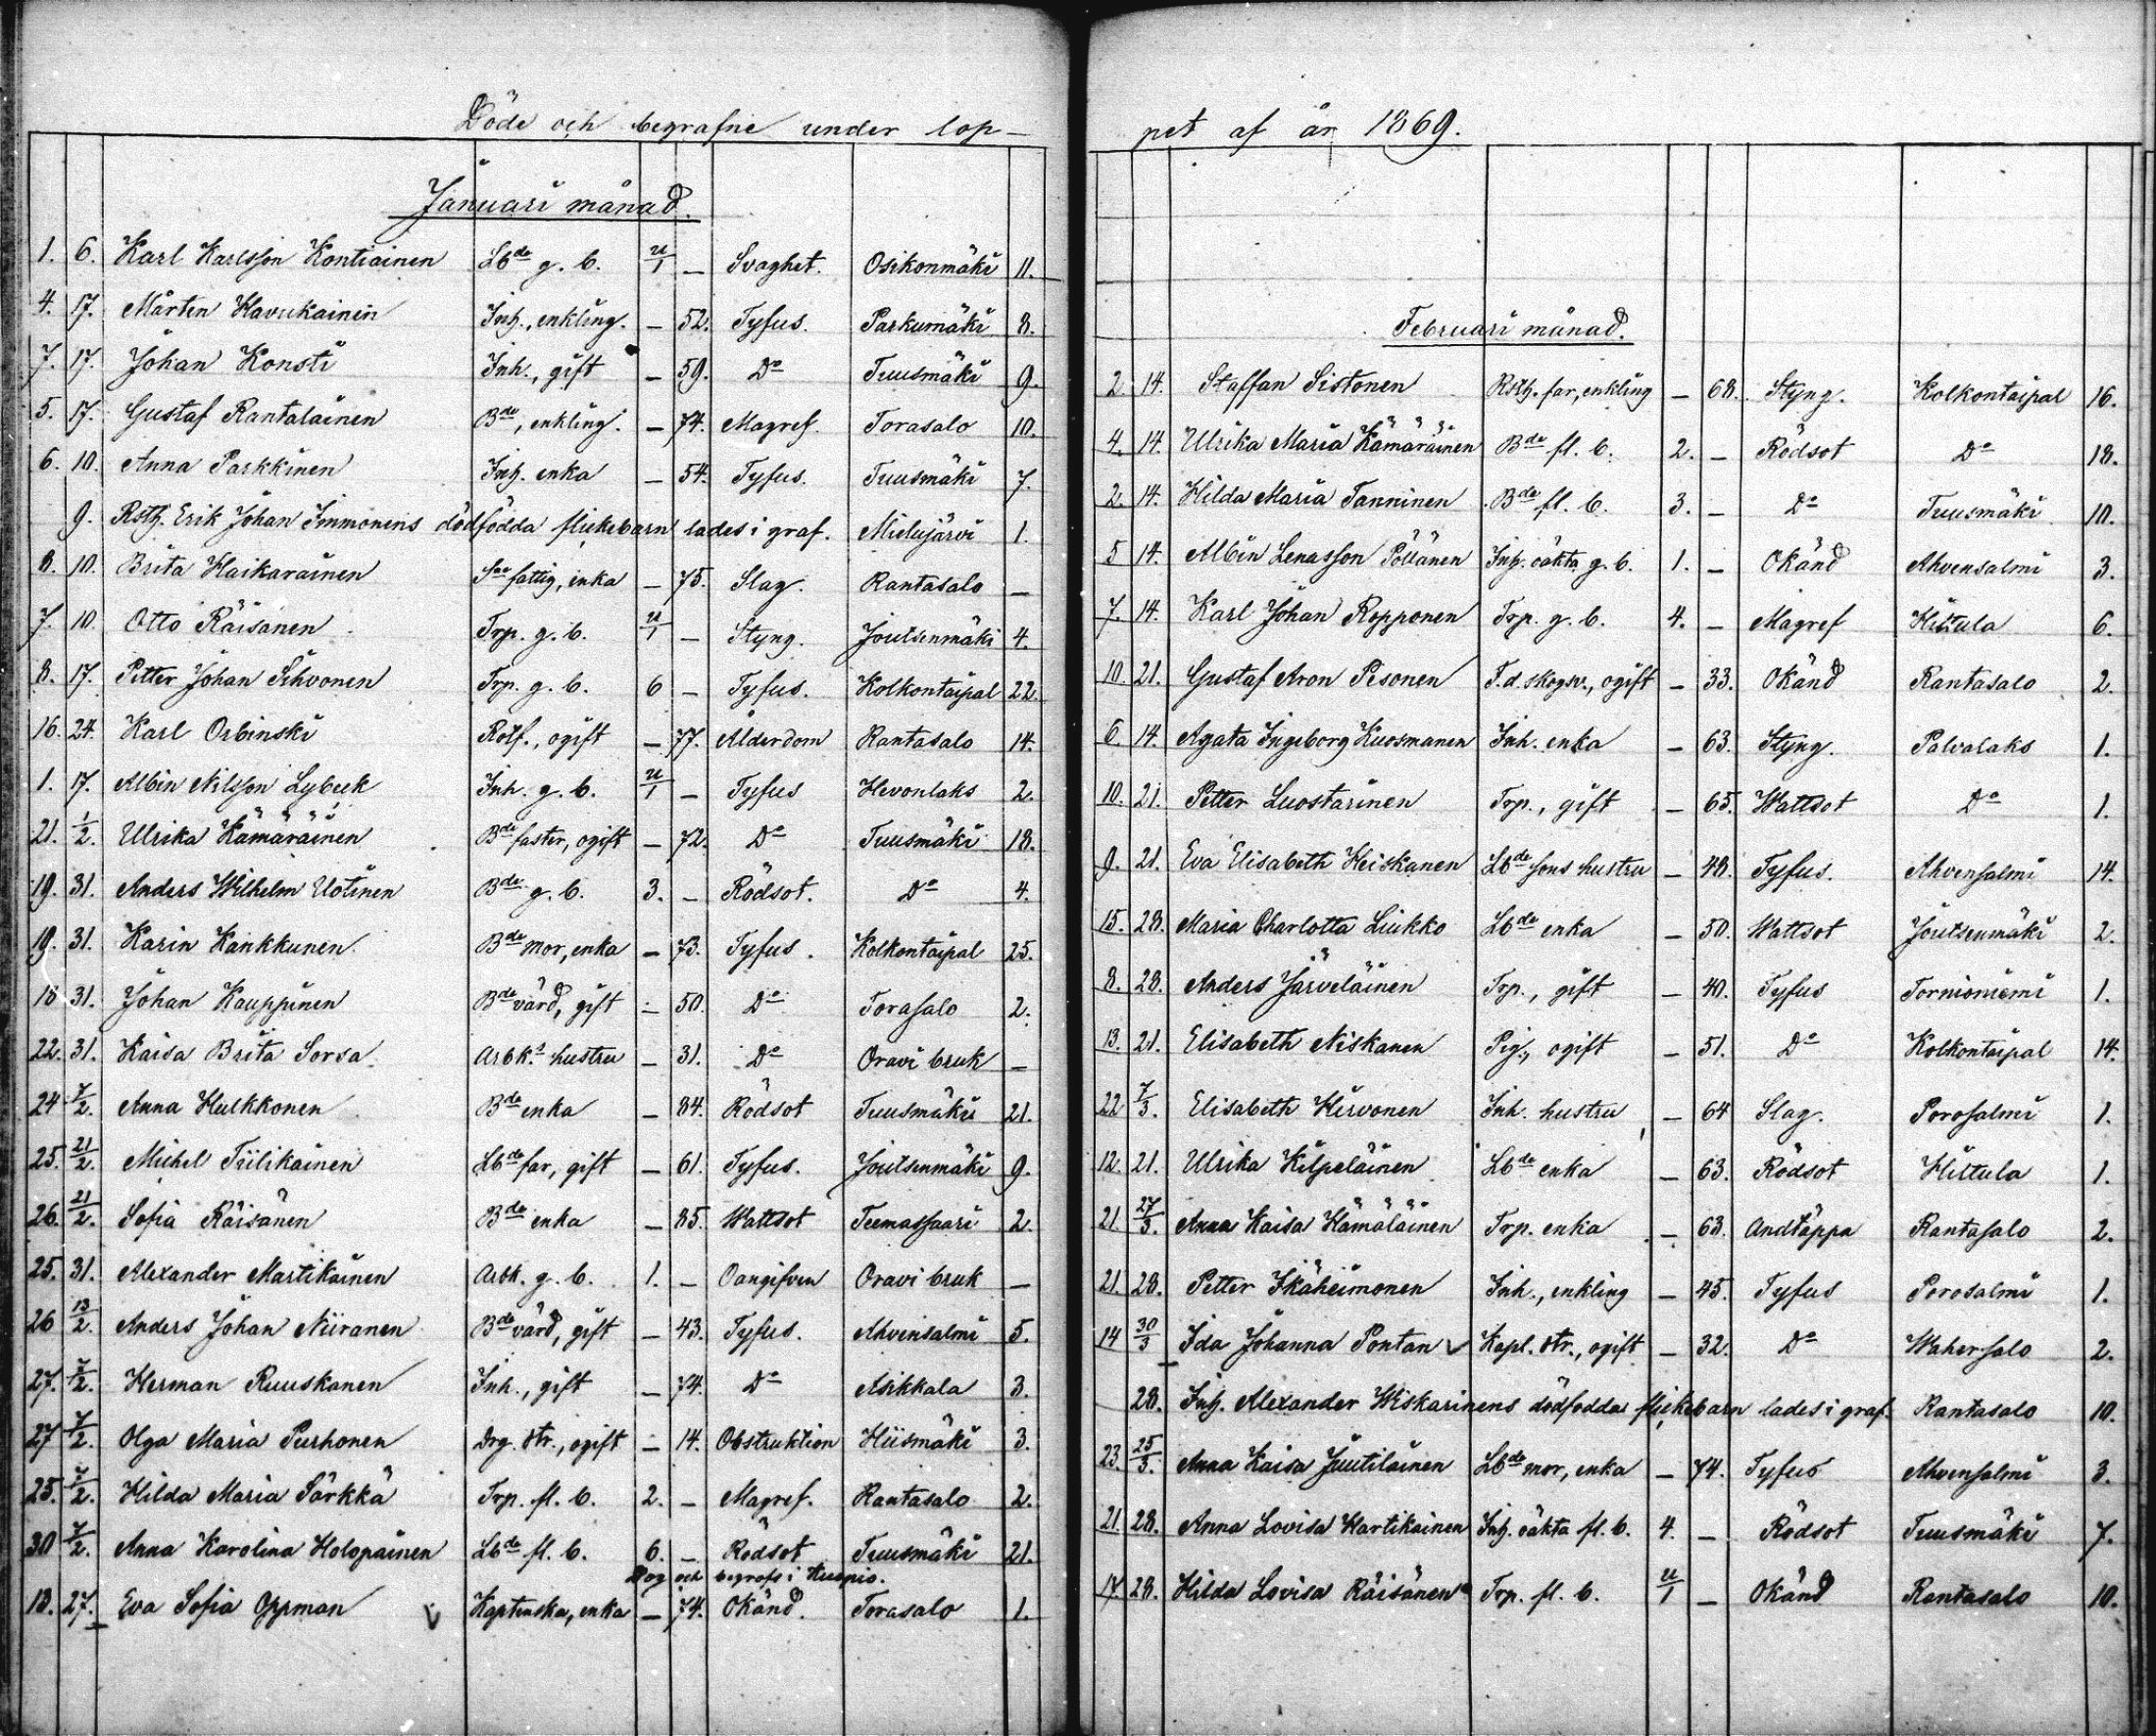 Döde och begrafne under lop-
Januari månad.
1. 6. Karl Karlsson Kontiainen Lbde g. b. u/1 — Svaghet. Osikonmäki 11.
4. 17. Mårten Havukainen Inh., enkling. — 52. Tyfus. Parkumäki 8.
7. 17. Johan Konsti Inh., gift — 59. Do Tuusmäki 9.
5. 17. Gustaf Rantalainen Bde, enkling. — 74. Magref. Torasalo 10.
6. 10. Anna Parkkinen Inh. enka — 54. Tyfus. Tuusmäki 7.
9. Rsth. Erik Johan Immonens dödfödda flickebarn lades i graf. Mielujärvi 1.
8. 10. Brita Haikarainen fattig, enka — 75. Slag. Rantasalo —
7. 10. Otto Räisänen Trp. g. b. u/1 — Styng. Joutsenmäki 4.
8. 17. Petter Johan Sihvonen Trp. g. b. 6 — Tyfus. Kolkontaipal 22.
16. 24. Karl Orbinski Rotf., ogift — 77. Ålderdom Rantasalo 14.
1. 17. Albin Nilsson Lybeck Inh. g. b. u/1 — Tyfus Hevonlaks 2.
21. 1/2. Ulrika Kämäräinen Bde faster, ogift — 72. Do Tuusmäki 18.
19. 31. Anders Wilhelm Uotinen Bde g. b. 3. — Rödsot. Do 4.
19. 31. Karin Kankkunen Bde mor, enka — 73. Tyfus. Kolkontaipal 25.
18 31. Johan Kauppinen Bde värd, gift — 50. Do Torasalo 2.
22. 31. Kaisa Brita Sorsa Arbk.s hustru — 31. Do Oravi bruk —
24 7/2. Anna Hulkkonen Bde enka — 84. Rödsot Tuusmäki 21.
25. 21/2. Michel Tiilikainen Lbde far, gift — 61. Tyfus. Joutsenmäki 9.
26. 21/2. Sofia Räisänen Bde enka — 85. Wattsot Teemassaari 2.
25. 31. Alexander Martikainen Arbk. g. b. 1. — Oangifven Oravi bruk —
26 13/2. Anders Johan Niiranen Bde värd, gift — 43. Tyfus. Ahvensalmi 5.
27. 7/2. Herman Ruuskanen Inh., gift — 74. Do Asikkala 3.
27 7/2. Olga Maria Purhonen Drg. dtr., ogift — 14. Obstruktion Hiismäki 3.
25. 7/2. Hilda Maria Särkkä Trp. fl. b. 2. — Magref. Rantasalo 2.
30 7/2. Anna Karolina Holopainen Lbde fl. b. 6. — Rödsot Tuusmäki 21.
Dog och begrofs i Kuopio.
13. 27. Eva Sofia Oppman Kaptenska, enka — 74. Okänd. Torasalo 1.
pet af år 1869.
Februari månad.
2. 14. Staffan Sistonen Rsth. far, enkling — 68. Styng. Kolkontaipal 16.
4. 14. Ulrika Maria Kämäräinen Bde fl. b. 2. — Rödsot Do 18.
2. 14. Hilda Maria Tanninen Bde fl. b. 3. — Do Tuusmäki 10.
5 14. Albin Lenasson Pöllänen Inh. oäkta g. b. 1. — Okänd Ahvensalmi 3.
7. 14. Karl Johan Ropponen Trp. g. b. 4. — Magref Hiltula 6.
10. 21. Gustaf Aron Pesonen F. d. skogsv., ogift — 33. Okänd Rantasalo 2.
6. 14. Agata Ingeborg Kuosmanen Inh. enka — 63. Styng. Palvalaks 1.
10. 21. Petter Luostarinen Trp., gift — 65. Wattsot Do 1.
9. 21. Eva Elisabeth Heiskanen Lbde sons hustru — 48. Tyfus. Ahvensalmi 14.
15. 28. Maria Charlotta Liukko Lbde enka — 50. Wattsot Joutsenmäki 2.
8. 28. Anders Järveläinen Trp., gift — 40. Tyfus Torniöniemi 1.
13. 21. Elisabeth Niskanen Pig., ogift — 51. Do Kolkontaipal 14.
22 7/3. Elisabeth Hirvonen Inh. hustru — 64 Slag. Porosalmi 1.
12. 21. Ulrika Kilpeläinen Lbde enka — 63. Rödsot Hiltula 1.
21. 27/3. Anna Kaisa Hämäläinen Trp. enka — 63. Andtäppa Rantasalo 2.
21. 28. Petter Ikäheimonen Inh., enkling — 45. Tyfus Porosalmi 1.
14 30/3 Ida Johanna Pontan Kapl. dtr., ogift — 32. Do Wahersalo 2.
28. Inh. Alexander Wiskarinens dödfödda flickebarn lades i graf. Rantasalo 10.
23. 25/3. Anna Kaisa Juutilainen Lbde mor, enka — 74. Tyfus Ahvensalmi 3.
21. 28. Anna Lovisa Martikainen Inh. oäkta fl. b. 4. — Rödsot Tuusmäki 7.
17. 28. Hilda Lovisa Räisänen Trp. fl. b. u/1 — Okänd Rantasalo 10.